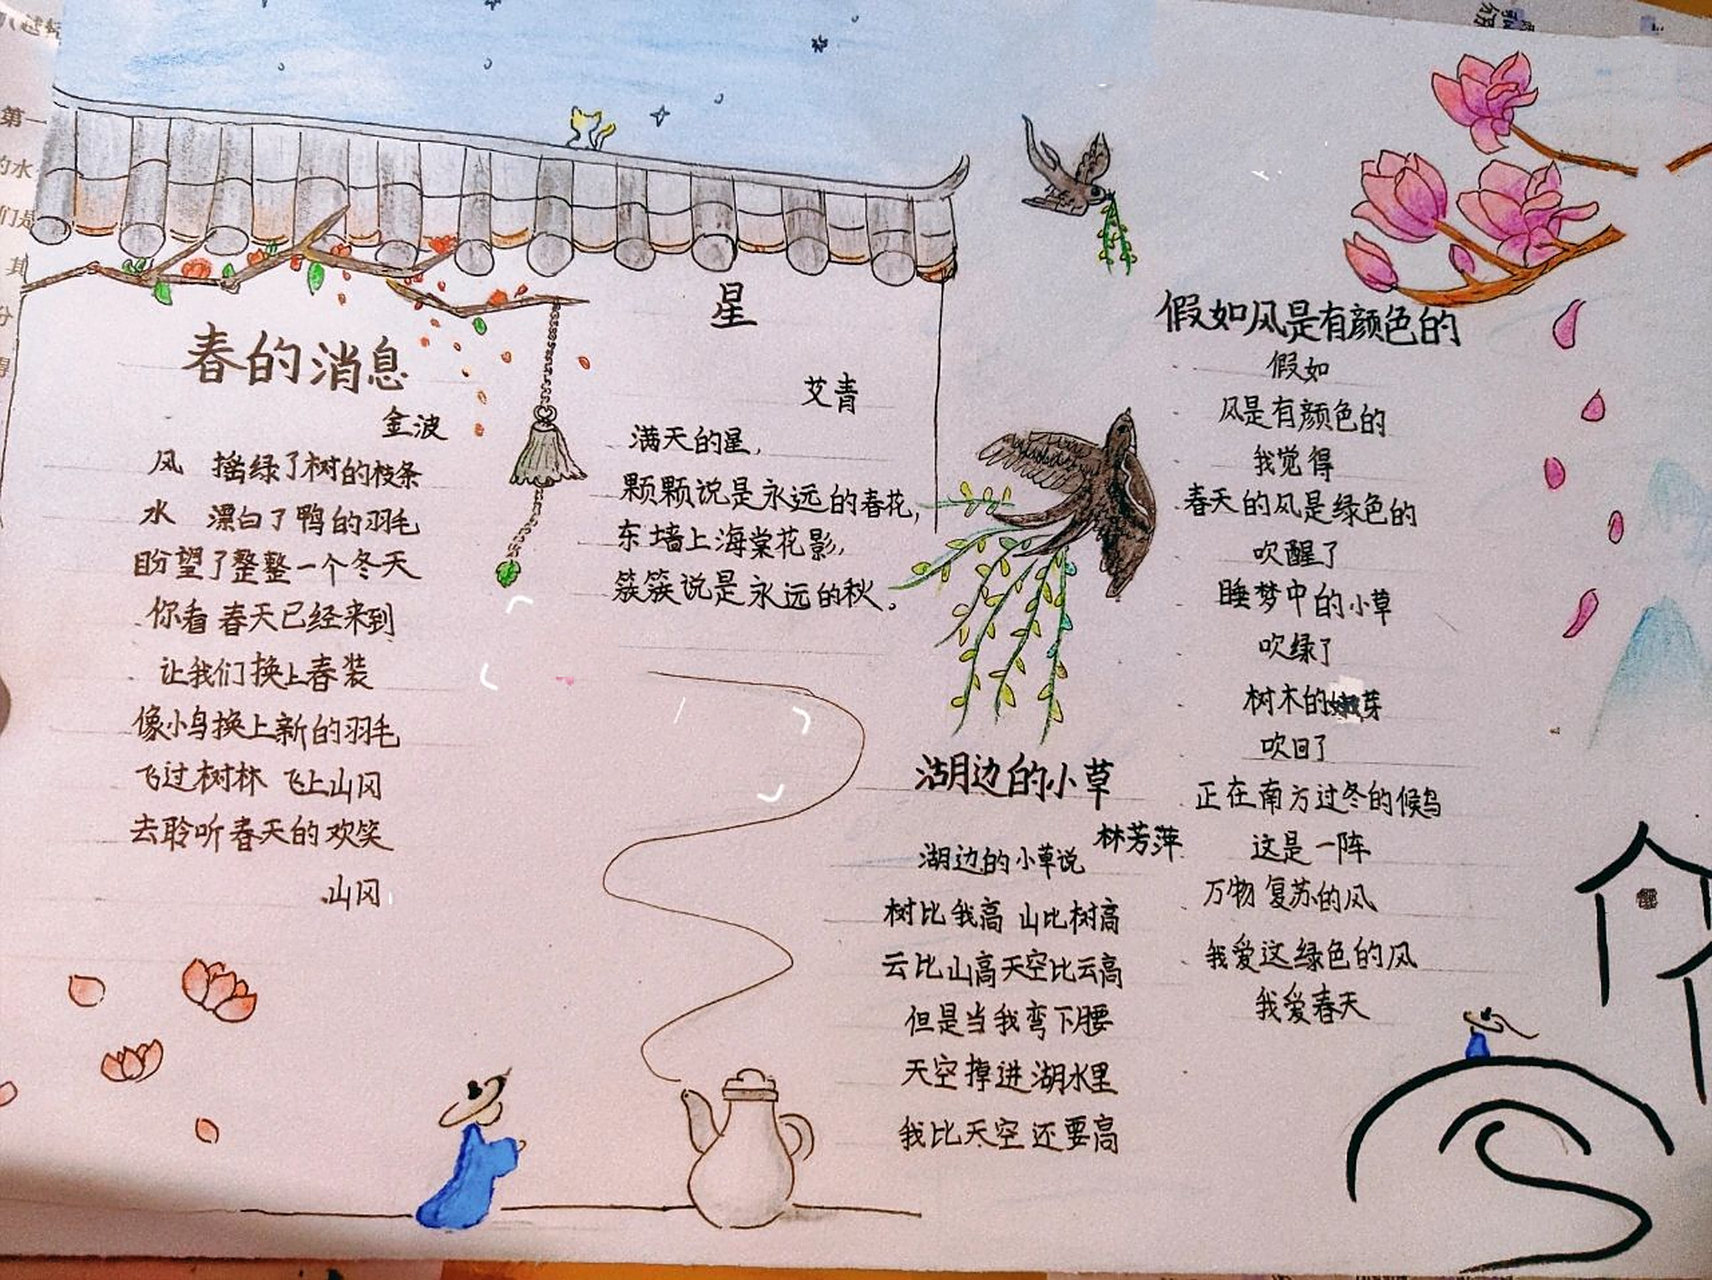 春的消息
金波
风 摇绿了树的枝条
水 漂白了鸭的羽毛
盼望了整整一个冬天
你看 春天已经来到
让我们换上春装
像小鸟换上新的羽毛
飞过树林 飞上山冈
去聆听春天的欢笑
山冈
星
艾青
满天的星,
颗颗说是永远的春花,
东墙上海棠花影,
簇簇说是永远的秋。
湖边的小草
林芳萍
湖边的小草说
树比我高 山比树高
云比山高天空比云高
但是当我弯下腰
天空掉进湖水里
我比天空还要高
假如风是有颜色的
假如
风是有颜色的
我觉得
春天的风是绿色的
吹醒了
睡梦中的小草
吹绿了
树木的嫩芽
吹回了
正在南方过冬的候鸟
这是一阵
万物复苏的风
我爱这绿色的风
我爱春天
第一
的水
们是
其
分
得